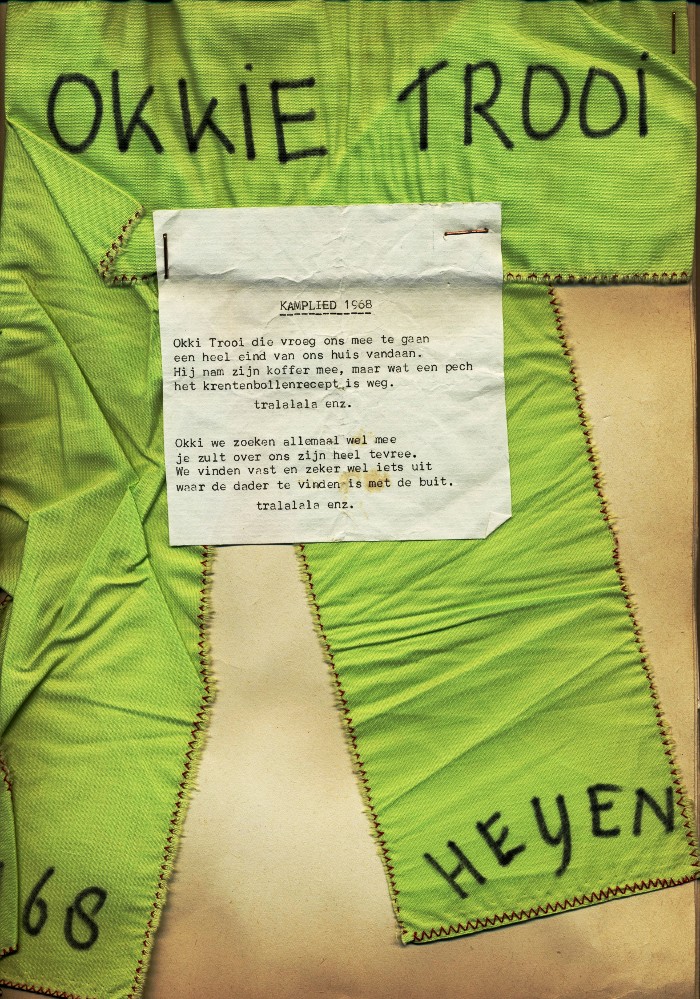 OKKIE TROOI
KAMPLIED 1968
Okki Trooi die vroeg ons mee te gaan
een heel eind van ons huis vandaan.
Hij nam zijn koffer mee, maar wat een pech
het krentenbollenrecept is weg.
tralalala enz.
Okki we zoeken allemaal wel mee
je zult over ons zijn heel tevree.
We vinden vast en zeker wel iets uit
waar de dader te vinden is met de buit.
tralalala enz.
HEYEN
68